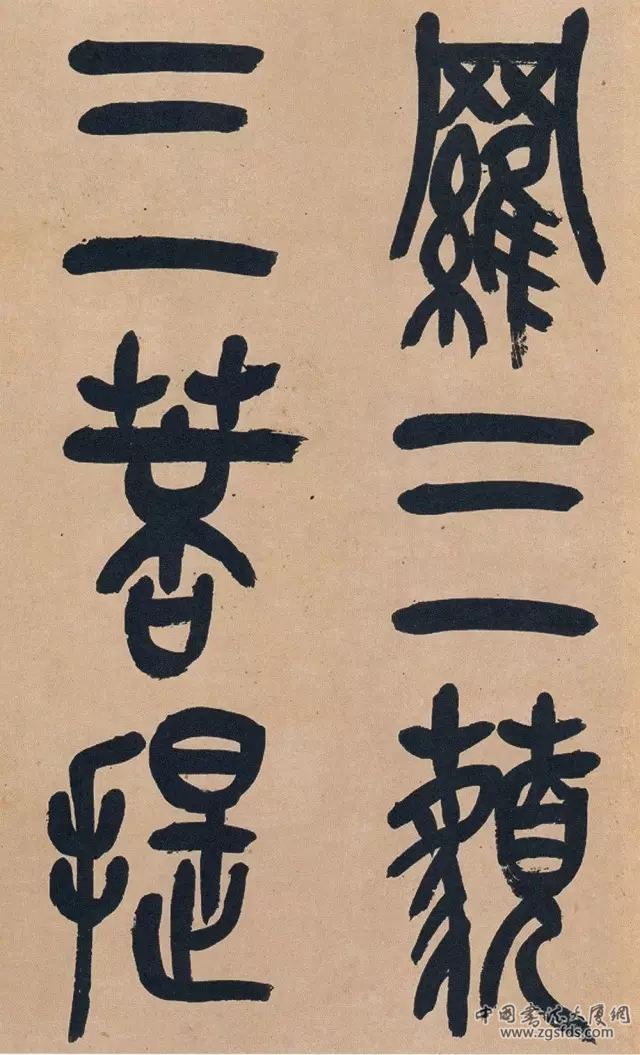 羅三藐
三菩提
中国書法大厦網
www.zgsfds.com